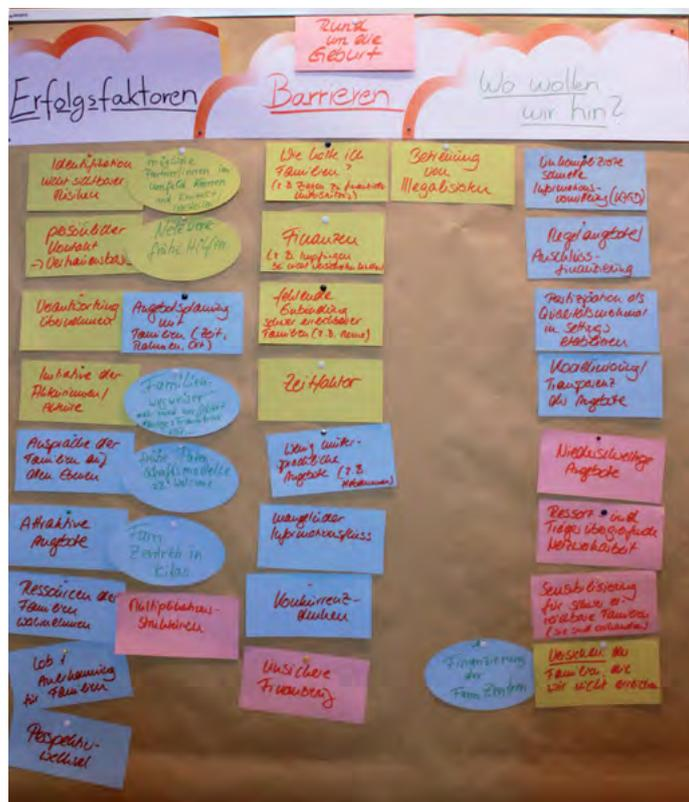 Rund
um die
Geburt
Erfolgsfaktoren
Identifikation
nicht sichtbarer
Risiken
mögliche
Partner/innen im
Umfeld kennen
und
persönlicher
Kontakt
Netzwerke
frühe Hilfen
Verantwortung
übernehmen
Angebotsplanung
mit
Familien (Zeit,
Rahmen, Ort)
Initiative der
Akteure
Familien-
wegweiser
Ansprache der
Familien auf
allen Ebenen
frühe Paten-
schaftsmodelle
z.B. Welcome
Attraktive
Angebote
Fam
Zentren in
Kitas
Ressourcen der
Familien
wahrnehmen
Multiplikatoren-
strukturen
Lob /
Anerkennung
für Familien
Perspektiv-
wechsel
Barrieren
Wie halte ich
Familien?
(z.B.
Finanzen
(z.B. Impfungen
fehlende
Einbindung
schwer erreichbarer
Familien (z.B.
Zeitfaktor
wenig mutter-
sprachliche
Angebote (z.B.
Hebammen)
mangelnder
Informationsfluss
Konkurrenz-
denken
Unsichere
Finanzierung
Betreuung
von
Illegalisierten
Wo wollen
wir hin?
Unkomplizierte
schnelle
Informations-
Regelangebote/
Anschluss-
finanzierung
Partizipation als
Qualitätsmerkmal
in Settings
etablieren
Koordinierung/
Transparenz
der Angebote
Niedrigschwellige
Angebote
Ressort- und
Trägerübergreifende
Netzwerkarbeit
Sensibilisierung
für schwer er-
reichbare Familien
(sie sind vorhanden)
Finanzierung
der
Fam Zentren
Familien, die
wir nicht erreichen